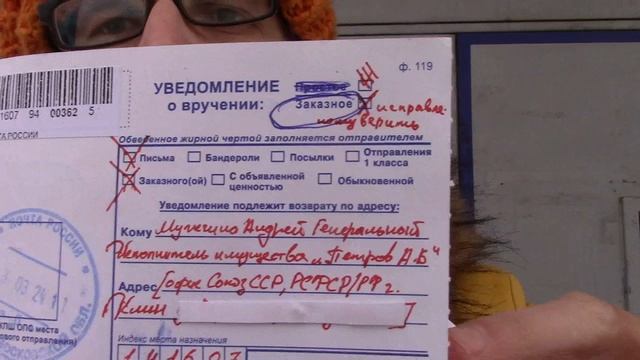 УВЕДОМЛЕНИЕ
о вручении:
Простое
Заказное
ф. 119
исправле-
верить
1607 94 00362 5
ТА РОССИИ
Обведенное жирной чертой заполняется отправителем
Письма
Бандероли
Посылки
Отправления
1 класса
Заказного(ой)
С объявленной
ценностью
Обыкновенной
Уведомление подлежит возврату по адресу:
Кому Мужчино Андрей Генеральный
Исполнитель имущества „Петров А.Б“
Адрес [Софис СоюзССР, РСФСР/РФ г.
Клин [ ]
Индекс места назначения
ПОЧТА РОССИИ
03 24 1
КПШ ОПС места
ового отправления)